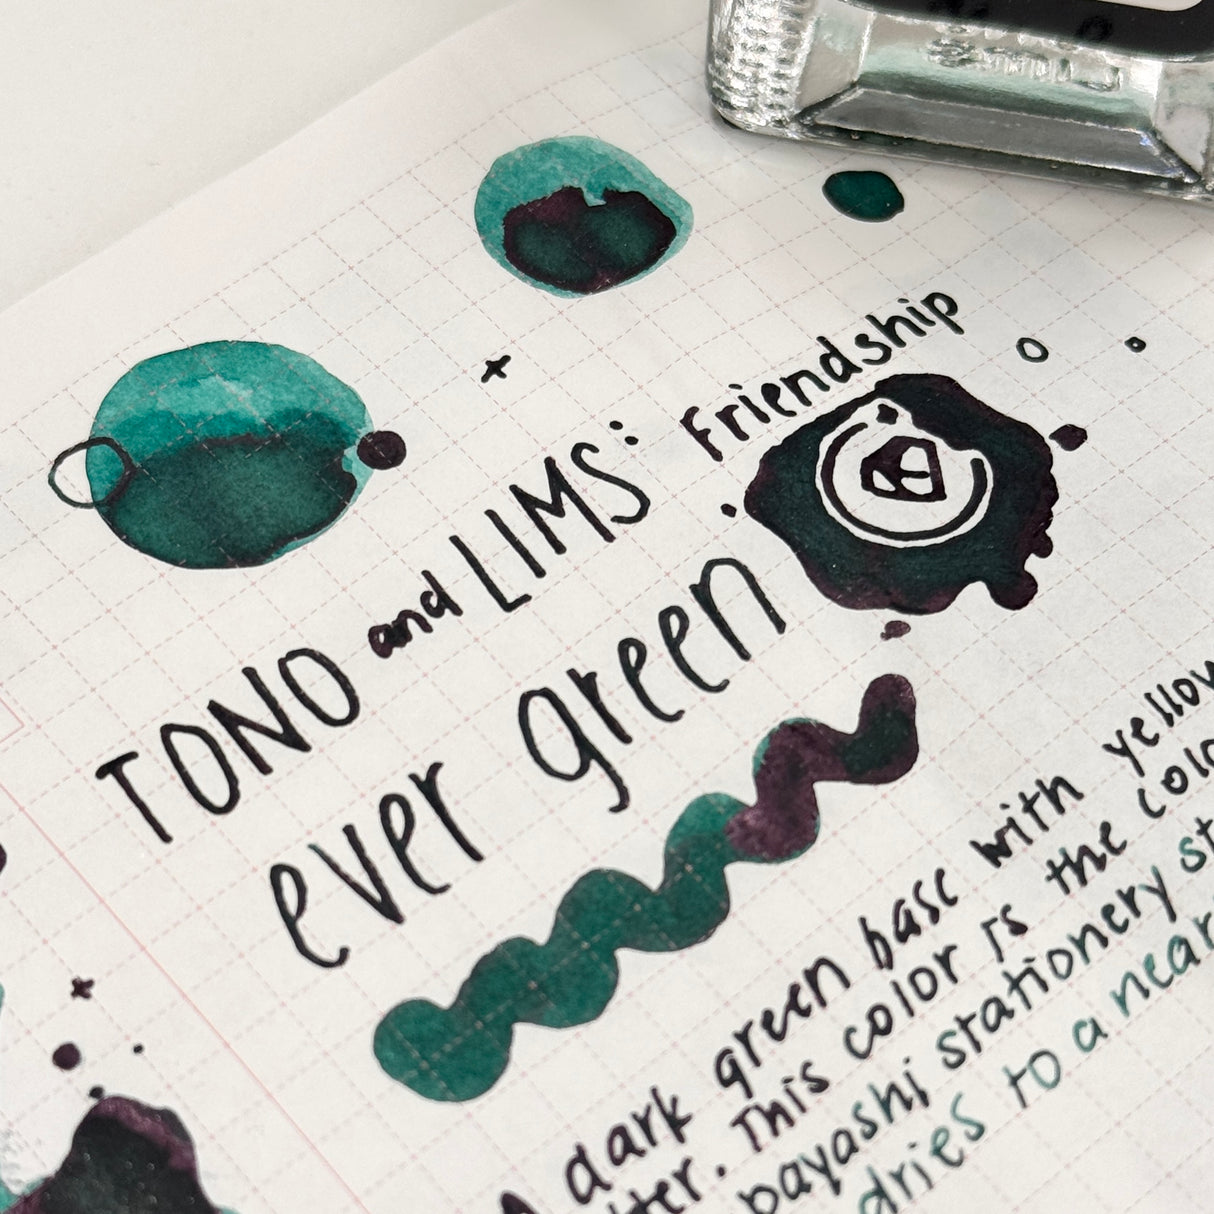 TONO and LIMS: Friendship
ever green
A dark green base with yellow
This color is the
bayashi stationery
dries to a near